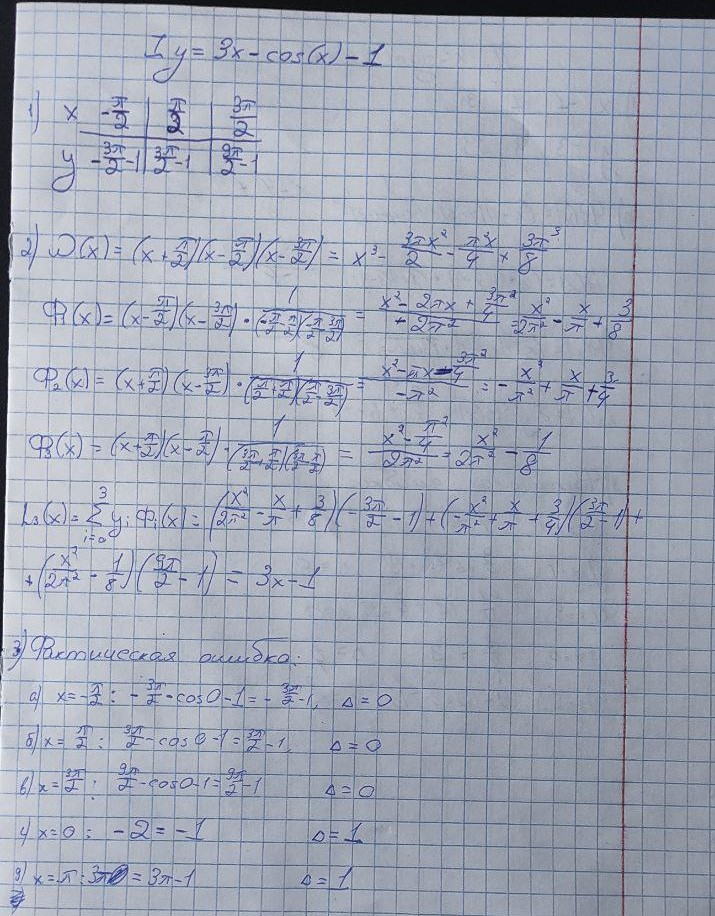 I y = 3x - cos(x) - 1
1) x | -π/2 | π/2 | 3π/2
y | -3π/2 - 1 | 3π/2 - 1 | 9π/2 - 1
2) ω(x) = (x + π/2)(x - π/2)(x - 3π/2) = x³ - 3πx²/2 - π²x/4 + 3π³/8
Φ₁(x) = (x - π/2)(x - 3π/2) · 1/((-π/2 - π/2)(-π/2 - 3π/2)) = (x² - 2πx + 3π²/4)/(+2π²) = x²/2π² - x/π + 3/8
Φ₂(x) = (x + π/2)(x - 3π/2) · 1/((π/2 + π/2)(π/2 - 3π/2)) = (x² - πx - 3π²/4)/(-π²) = -x²/π² + x/π + 3/4
Φ₃(x) = (x + π/2)(x - π/2) · 1/((3π/2 + π/2)(3π/2 - π/2)) = (x² - π²/4)/2π² = x²/2π² - 1/8
L₃(x) = Σ³ᵢ₌₀ yᵢ Φᵢ(x) = (x²/2π² - x/π + 3/8)(-3π/2 - 1) + (-x²/π² + x/π + 3/4)(3π/2 - 1) +
+ (x²/2π² - 1/8)(9π/2 - 1) = 3x - 1
3) Фактическая ошибка:
а) x = -π/2 : -3π/2 - cos0 - 1 = -3π/2 - 1, Δ = 0
б) x = π/2 : 3π/2 - cos0 - 1 = 3π/2 - 1, Δ = 0
в) x = 3π/2 : 9π/2 - cos0 - 1 = 9π/2 - 1 Δ = 0
4) x = 0 : -2 = -1 Δ = 1
g) x = π : 3π = 3π - 1 Δ = 1